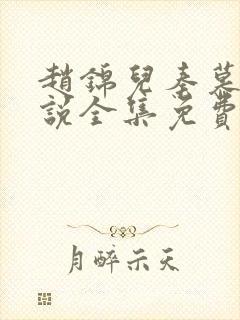 趙錦兒秦慕
說全集免費
月醉示天